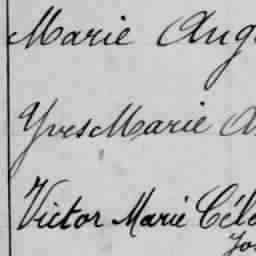 Marie Aug
Yves Marie A
Victor Marie Céle
Jos